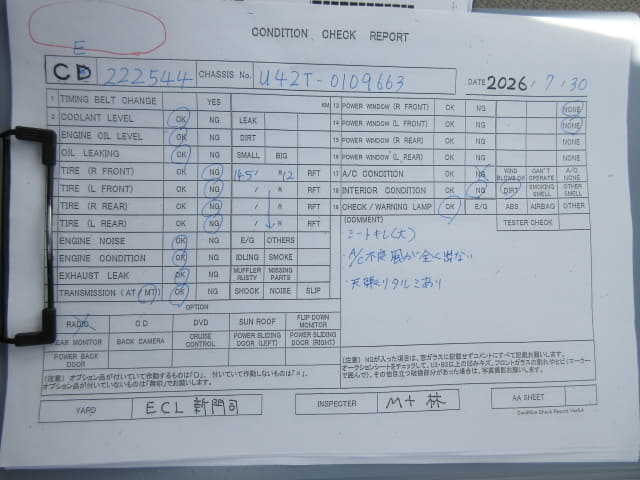 CONDITION CHECK REPORT
E
CD 222544 CHASSIS No. U42T-0109663 DATE 2026/7/30
1 TIMING BELT CHANGE YES KM
2 COOLANT LEVEL OK NG LEAK
ENGINE OIL LEVEL OK NG DIRT
OIL LEAKING OK NG SMALL BIG
TIRE (R FRONT) OK NG 145/ R12 RFT
TIRE (L FRONT) OK NG / R RFT
TIRE (R REAR) OK NG / R RFT
TIRE (L REAR) OK NG / R RFT
ENGINE NOISE OK NG E/G OTHERS
ENGINE CONDITION OK NG IDLING SMOKE
EXHAUST LEAK OK NG MUFFLER RUSTY MISSING PARTS
TRANSMISSION (AT MT) OK NG SHOCK NOISE SLIP
13 POWER WINDOW (R FRONT) OK NG NONE
14 POWER WINDOW (L FRONT) OK NG NONE
15 POWER WINDOW (R REAR) OK NG NONE
16 POWER WINDOW (L REAR) OK NG NONE
17 A/C CONDITION OK NG WIND BLOWS OK CAN'T OPERATE A/C NONE
18 INTERIOR CONDITION OK NG DIRT SMOKING SMELL OTHER SMELL
19 CHECK/WARNING LAMP OK E/G ABS AIRBAG OTHER
(COMMENT) TESTER CHECK
シートキレ(大)
・A/C不良 風が全く出ない
・天張りタルミあり
OPTION
RADIO CD DVD SUN ROOF FLIP DOWN MONITOR
REAR MONITOR BACK CAMERA CRUISE CONTROL POWER SLIDING DOOR (LEFT) POWER SLIDING DOOR (RIGHT)
POWER BACK DOOR
(注意) オプション品が付いていて作動するものは「○」、付いていて作動しないものは「×」、
オプション品が付いていないものは「無印」でお願いします。
(注意) NGが入った項は、窓ガラスに記載せずコメントにすべて記載お願いします。
オークションシートをチェックして、U3・B3以上の凹みキズ、フロントガラスの割れやヒビ(マーカー
で囲んで)、その他目立つ破損部分があった場合は、写真撮影お願いします。
YARD ECL 新門司 INSPECTER M+ 林 AA SHEET
Condition Check Report Ver5.4